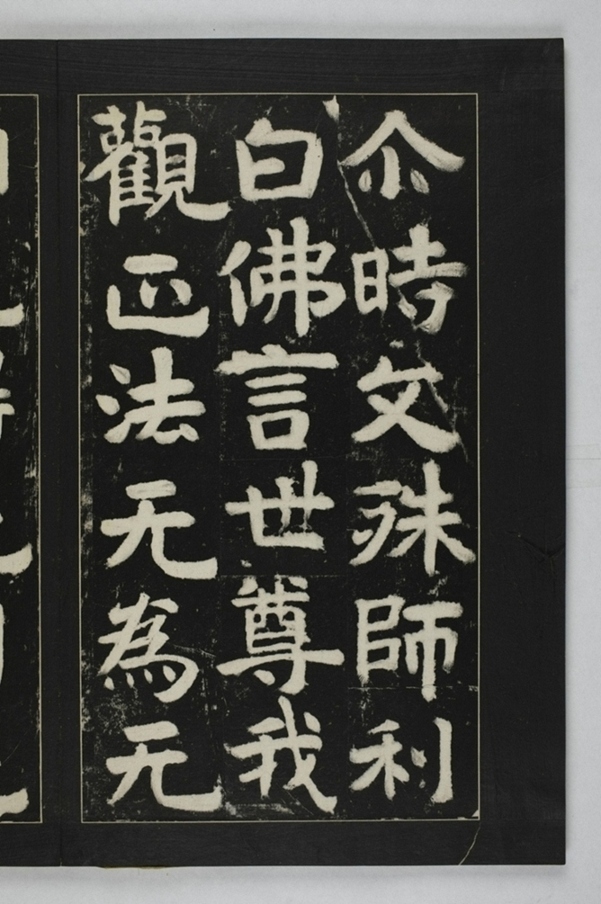 尒時文殊師利
白佛言世尊我
觀正法无為无